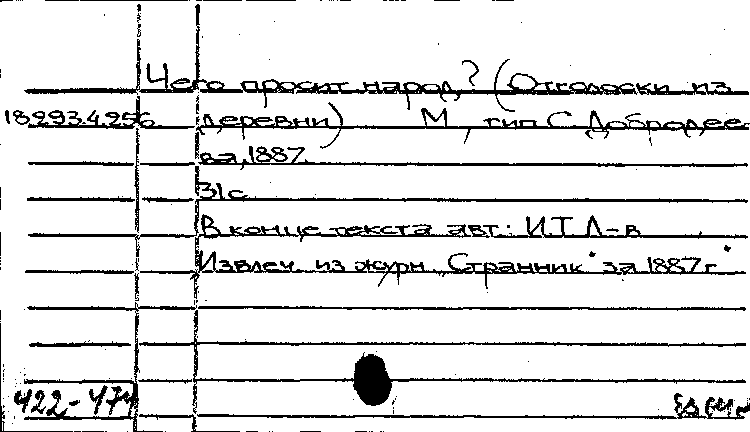 Чего просит народ? (Отголоски из
18.293.4.256 деревни) М, тип С. Добродее-
ва, 1887.
31 с
В конце текста авт.: И.Т. Л-в
Извлеч. из журн „Странник" за 1887 г
422-474